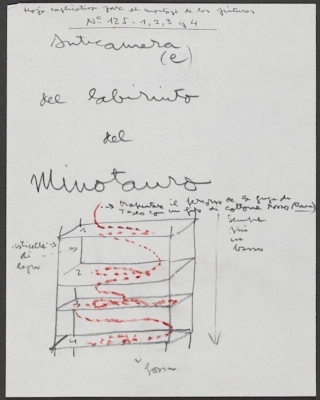 Hoja explicativa para el montaje de las pinturas
Nº 125-1, 2, 3 y 4
Anticamera
(e)
del labirinto
del
Minotauro
il percorso de la fuga di
Teseo con un filo di cottone rosso
sempre
più
in
basso
sticelle
di
legno
1
2
3
4